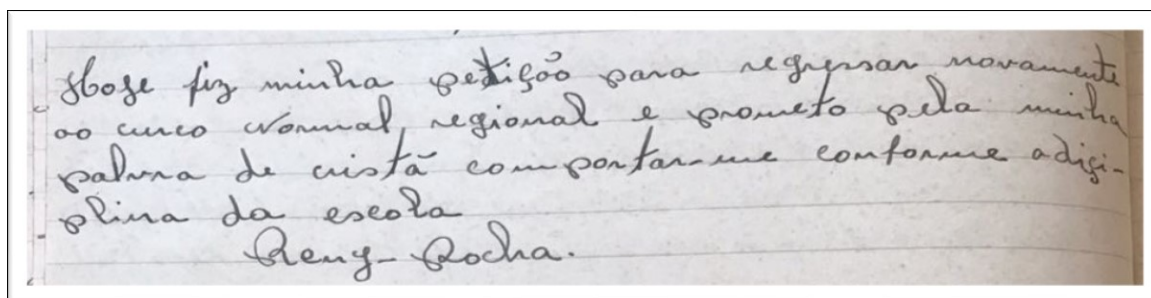 Hoje fiz minha petição para regressar novamente
ao curco Normal, regional e prometo pela minha
palvra de cristã comportar-me conforme a diçi-
plina da escola
Reny- Rocha.